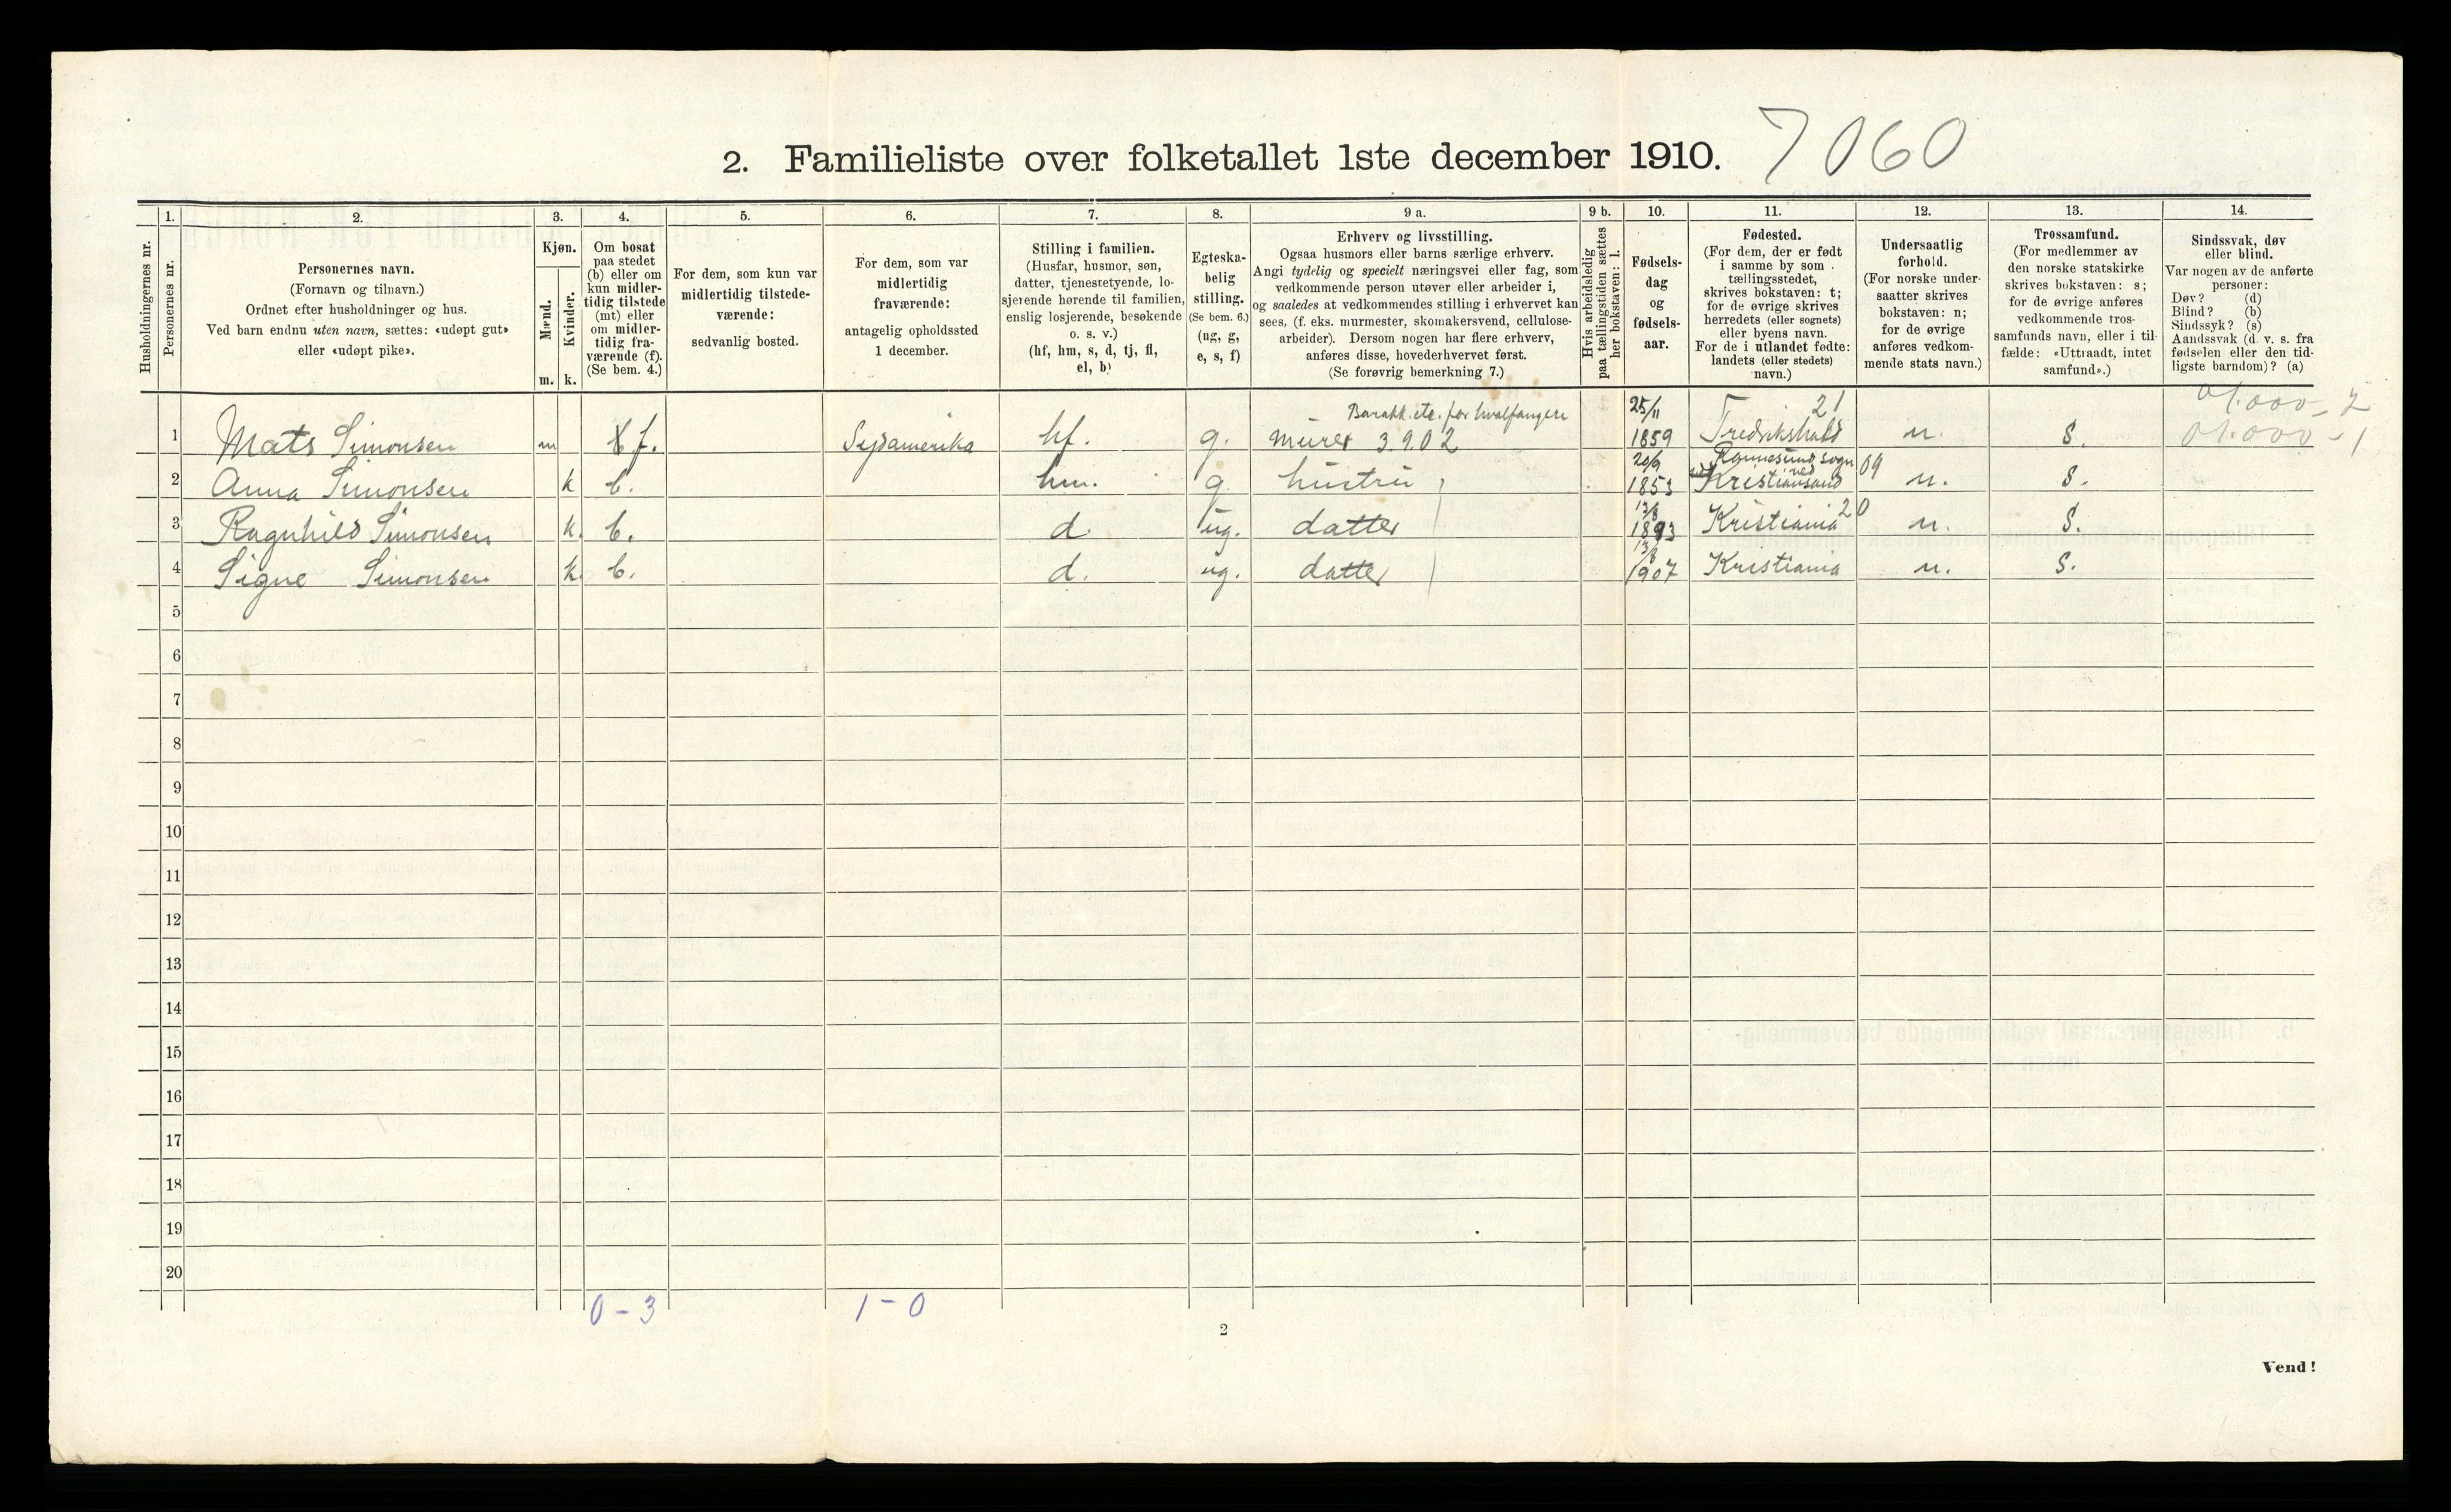 7060
2. Familieliste over folketallet 1ste december 1910.
Husholdningernes nr.
1.
Personernes nr.
2.
Personernes navn.
(Fornavn og tilnavn.)
Ordnet efter husholdninger og hus.
Ved barn endnu uten navn, sættes: «udøpt gut»
eller «udøpt pike».
3.
Kjøn.
Mænd.
Kvinder.
m. k.
4.
Om bosat
paa stedet
(b) eller om
kun midler-
tidig tilstede
(mt) eller
om midler-
tidig fra-
værende (f).
(Se bem. 4.)
5.
For dem, som kun var
midlertidig tilstede-
værende:
sedvanlig bosted.
6.
For dem, som var
midlertidig
fraværende:
antagelig opholdssted
1 december.
7.
Stilling i familien.
(Husfar, husmor, søn,
datter, tjenestetyende, lo-
sjerende hørende til familien,
enslig losjerende, besøkende
o. s. v.)
(hf, hm, s, d, tj, fl,
el, b)
8.
Egteska-
belig
stilling.
(Se bem. 6.)
(ug, g,
e, s, f)
9 a.
Erhverv og livsstilling.
Ogsaa husmors eller barns særlige erhverv.
Angi tydelig og specielt næringsvei eller fag, som
vedkommende person utøver eller arbeider i,
og saaledes at vedkommendes stilling i erhvervet kan
sees, (f. eks. murmester, skomakersvend, cellulose-
arbeider). Dersom nogen har flere erhverv,
anføres disse, hovederhvervet først.
(Se forøvrig bemerkning 7.)
9 b.
Hvis arbeidsledig
paa tællingstiden sættes
her bokstaven: l.
10.
Fødsels-
dag
og
fødsels-
aar.
11.
Fødested.
(For dem, der er født
i samme by som
tællingsstedet,
skrives bokstaven: t;
for de øvrige skrives
herredets (eller sognets)
eller byens navn.
For de i utlandet fødte:
landets (eller stedets)
navn.)
12.
Undersaatlig
forhold.
(For norske under-
saatter skrives
bokstaven: n;
for de øvrige
anføres vedkom-
mende stats navn.)
13.
Trossamfund.
(For medlemmer av
den norske statskirke
skrives bokstaven: s;
for de øvrige anføres
vedkommende tros-
samfunds navn, eller i til-
fælde: «Uttraadt, intet
samfund».)
14.
Sindssvak, døv
eller blind.
Var nogen av de anførte
personer:
Døv? (d)
Blind? (b)
Sindssyk? (s)
Aandssvak (d. v. s. fra
fødselen eller den tid-
ligste barndom)? (a)
Barakk. etc. for hvalfangere 25/11 21 01.000-2
1 Mats Simonsen m f. Sydamerika hf. g. murer 3.9.02 1859 Fredrikshald n. S. 01.000-1
20/9 Rannesund sogn
2 Anna Simonsen k b. hm. g. hustru 1853 ved Kristiansand 09 n. S.
13/8 20
3 Ragnhild Simonsen k. b. d. ug. datter 1893 Kristiania n. S.
13/8
4 Signe Simonsen k. b. d. ug. datter 1907 Kristiania n. S.
5
6
7
8
9
10
11
12
13
14
15
16
17
18
19
20
0-3 1-0
2
Vend!